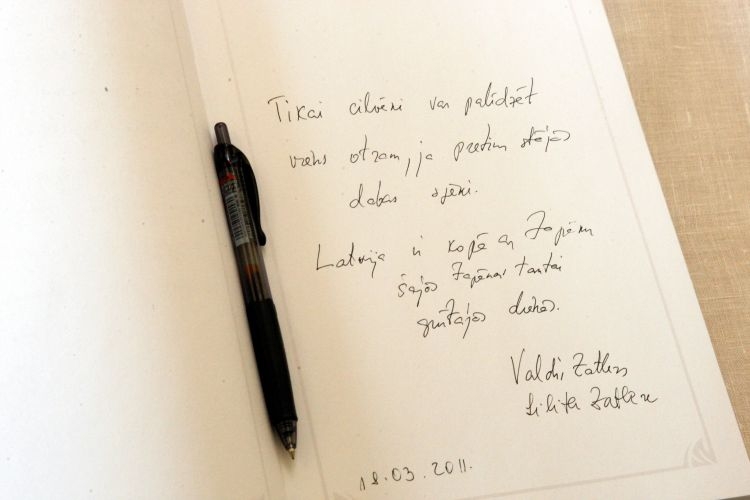 Tikai cilvēki var palīdzēt
viens otram, ja pretim stājas
dabas spēki.
Latvija ir kopā ar Japānu
šajās Japānas tautai
grūtajās dienās.
Valdis Zatlers
Lilita Zatlere
18.03.2011.